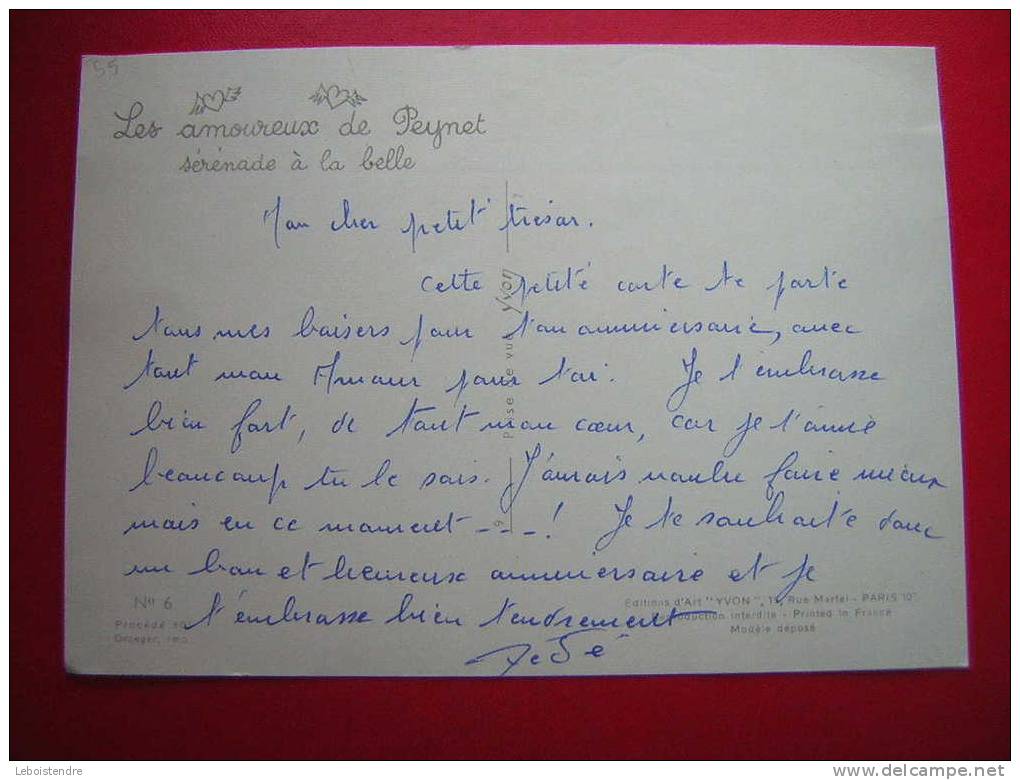 55
Les amoureux de Peynet
sérénade à la belle
Mon cher petit trésor.
Cette petite carte te porte
tous mes baisers pour ton anniversaire, avec
tout mon Amour pour toi. Je t'embrasse
bien fort, de tout mon cœur, car je t'aime
beaucoup tu le sais. J'aurais voulu faire mieux
mais en ce moment - - - ! Je te souhaite donc
un bon et heureux anniversaire et je
t'embrasse bien tendrement
Prise de vue Yvon
N° 6
Procédé
Draeger, imp.
Editions d'Art "YVON", 15, Rue Martel - PARIS 10e
Reproduction interdite - Printed in France
Modèle déposé
Leboistendre
delcampe.net